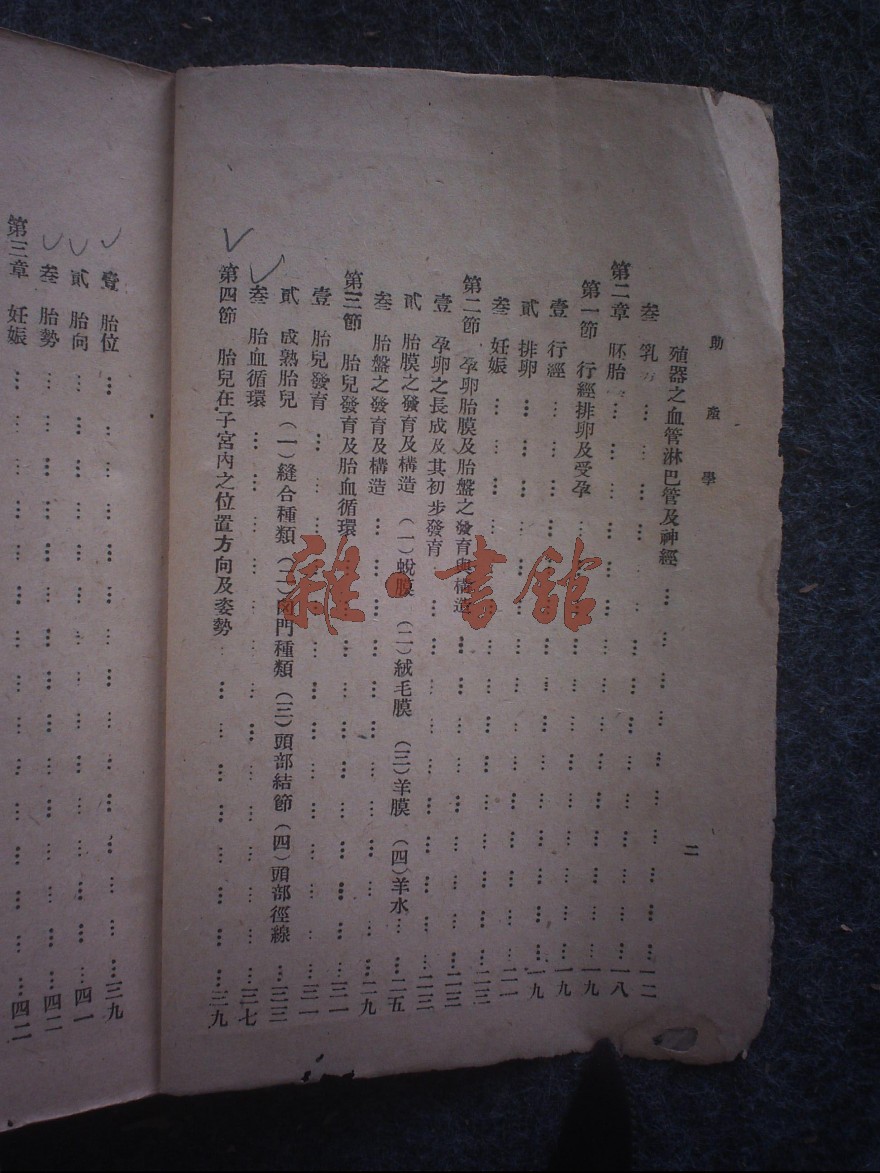 助產學
二
殖器之血管淋巴管及神經
叁 乳 … 一二
第二章 胚胎 … 一八
第一節 行經排卵及受孕 … 一九
壹 行經 … 一九
貳 排卵 … 一九
叁 妊娠 … 二一
第二節 孕卵胎膜及胎盤之發育與構造 … 二三
壹 孕卵之長成及其初步發育 … 二三
貳 胎膜之發育及構造 (一)蛻膜 (二)絨毛膜 (三)羊膜 (四)羊水 … 二五
叁 胎盤之發育及構造 … 二九
第三節 胎兒發育及胎血循環 … 三一
壹 胎兒發育 … 三一
貳 成熟胎兒 (一)縫合種類 (二)囟門種類 (三)頭部結節 (四)頭部徑線 … 三三
叁 胎血循環 … 三七
第四節 胎兒在子宮內之位置方向及姿勢 … 三九
壹 胎位 … 三九
貳 胎向 … 四一
叁 胎勢 … 四二
第三章 妊娠 … 四二
雜·書館